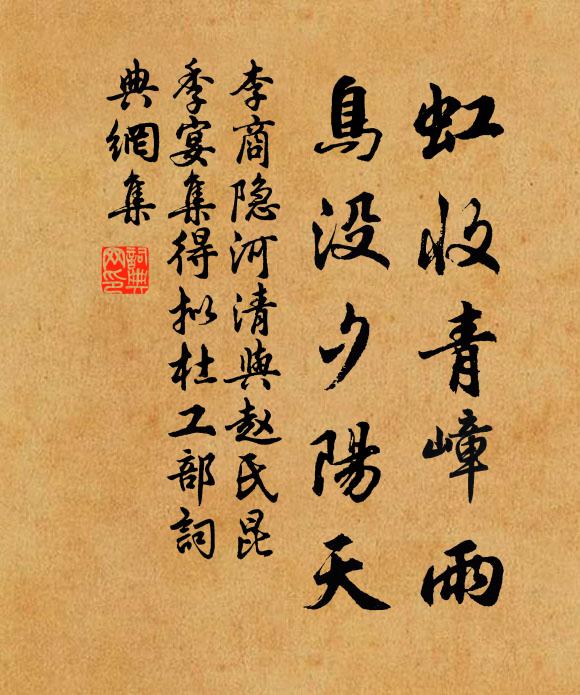 虹收青嶂雨
鳥没夕陽天
李商隐河清與赵氏昆
季宴集得拟杜工部詞
典網集
詞典
网印